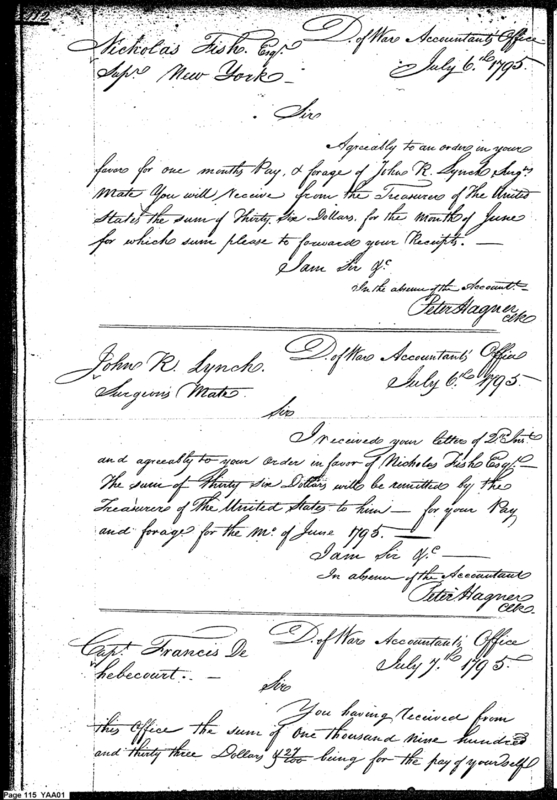 112
Nickolas Fish Esqr. D. of War Accountants Office
Supr. New York — July 6.th 1795.
Sir
Agreeably to an order in your
favor for one months Pay, & forage of John R. Lynch Surgs.
Mate You will receive from the Treasurer of The United
States the sum of Thirty Six Dollars. for the Month of June
for which sum please to forward your Receipts. —
I am Sir &c
In the absence of the Accountt.
Peter Hagner
Clk
John R. Lynch. D. of War Accountants Office
Surgeons Mate July 6.th 1795.
Sir
I received your letter of 2d. Inst.
and agreeably to your order in favor of Nicholas Fish Esqr. —
The sum of Thirty six Dollars will be remitted by the
Treasurer of The United States to him — for your Pay
and forage for the Mo. of June 1795. —
I am Sir &c —
In absence of the Accountant
Peter Hagner
Clk
Capt. Francis De D. of War Accountants Office
hebecourt. — July 7.th 1795.
Sir
You having received from
this Office the sum of One thousand nine hundred
and thirty three Dollars & 27/100 being for the pay of yourself
Page 115 YAA01